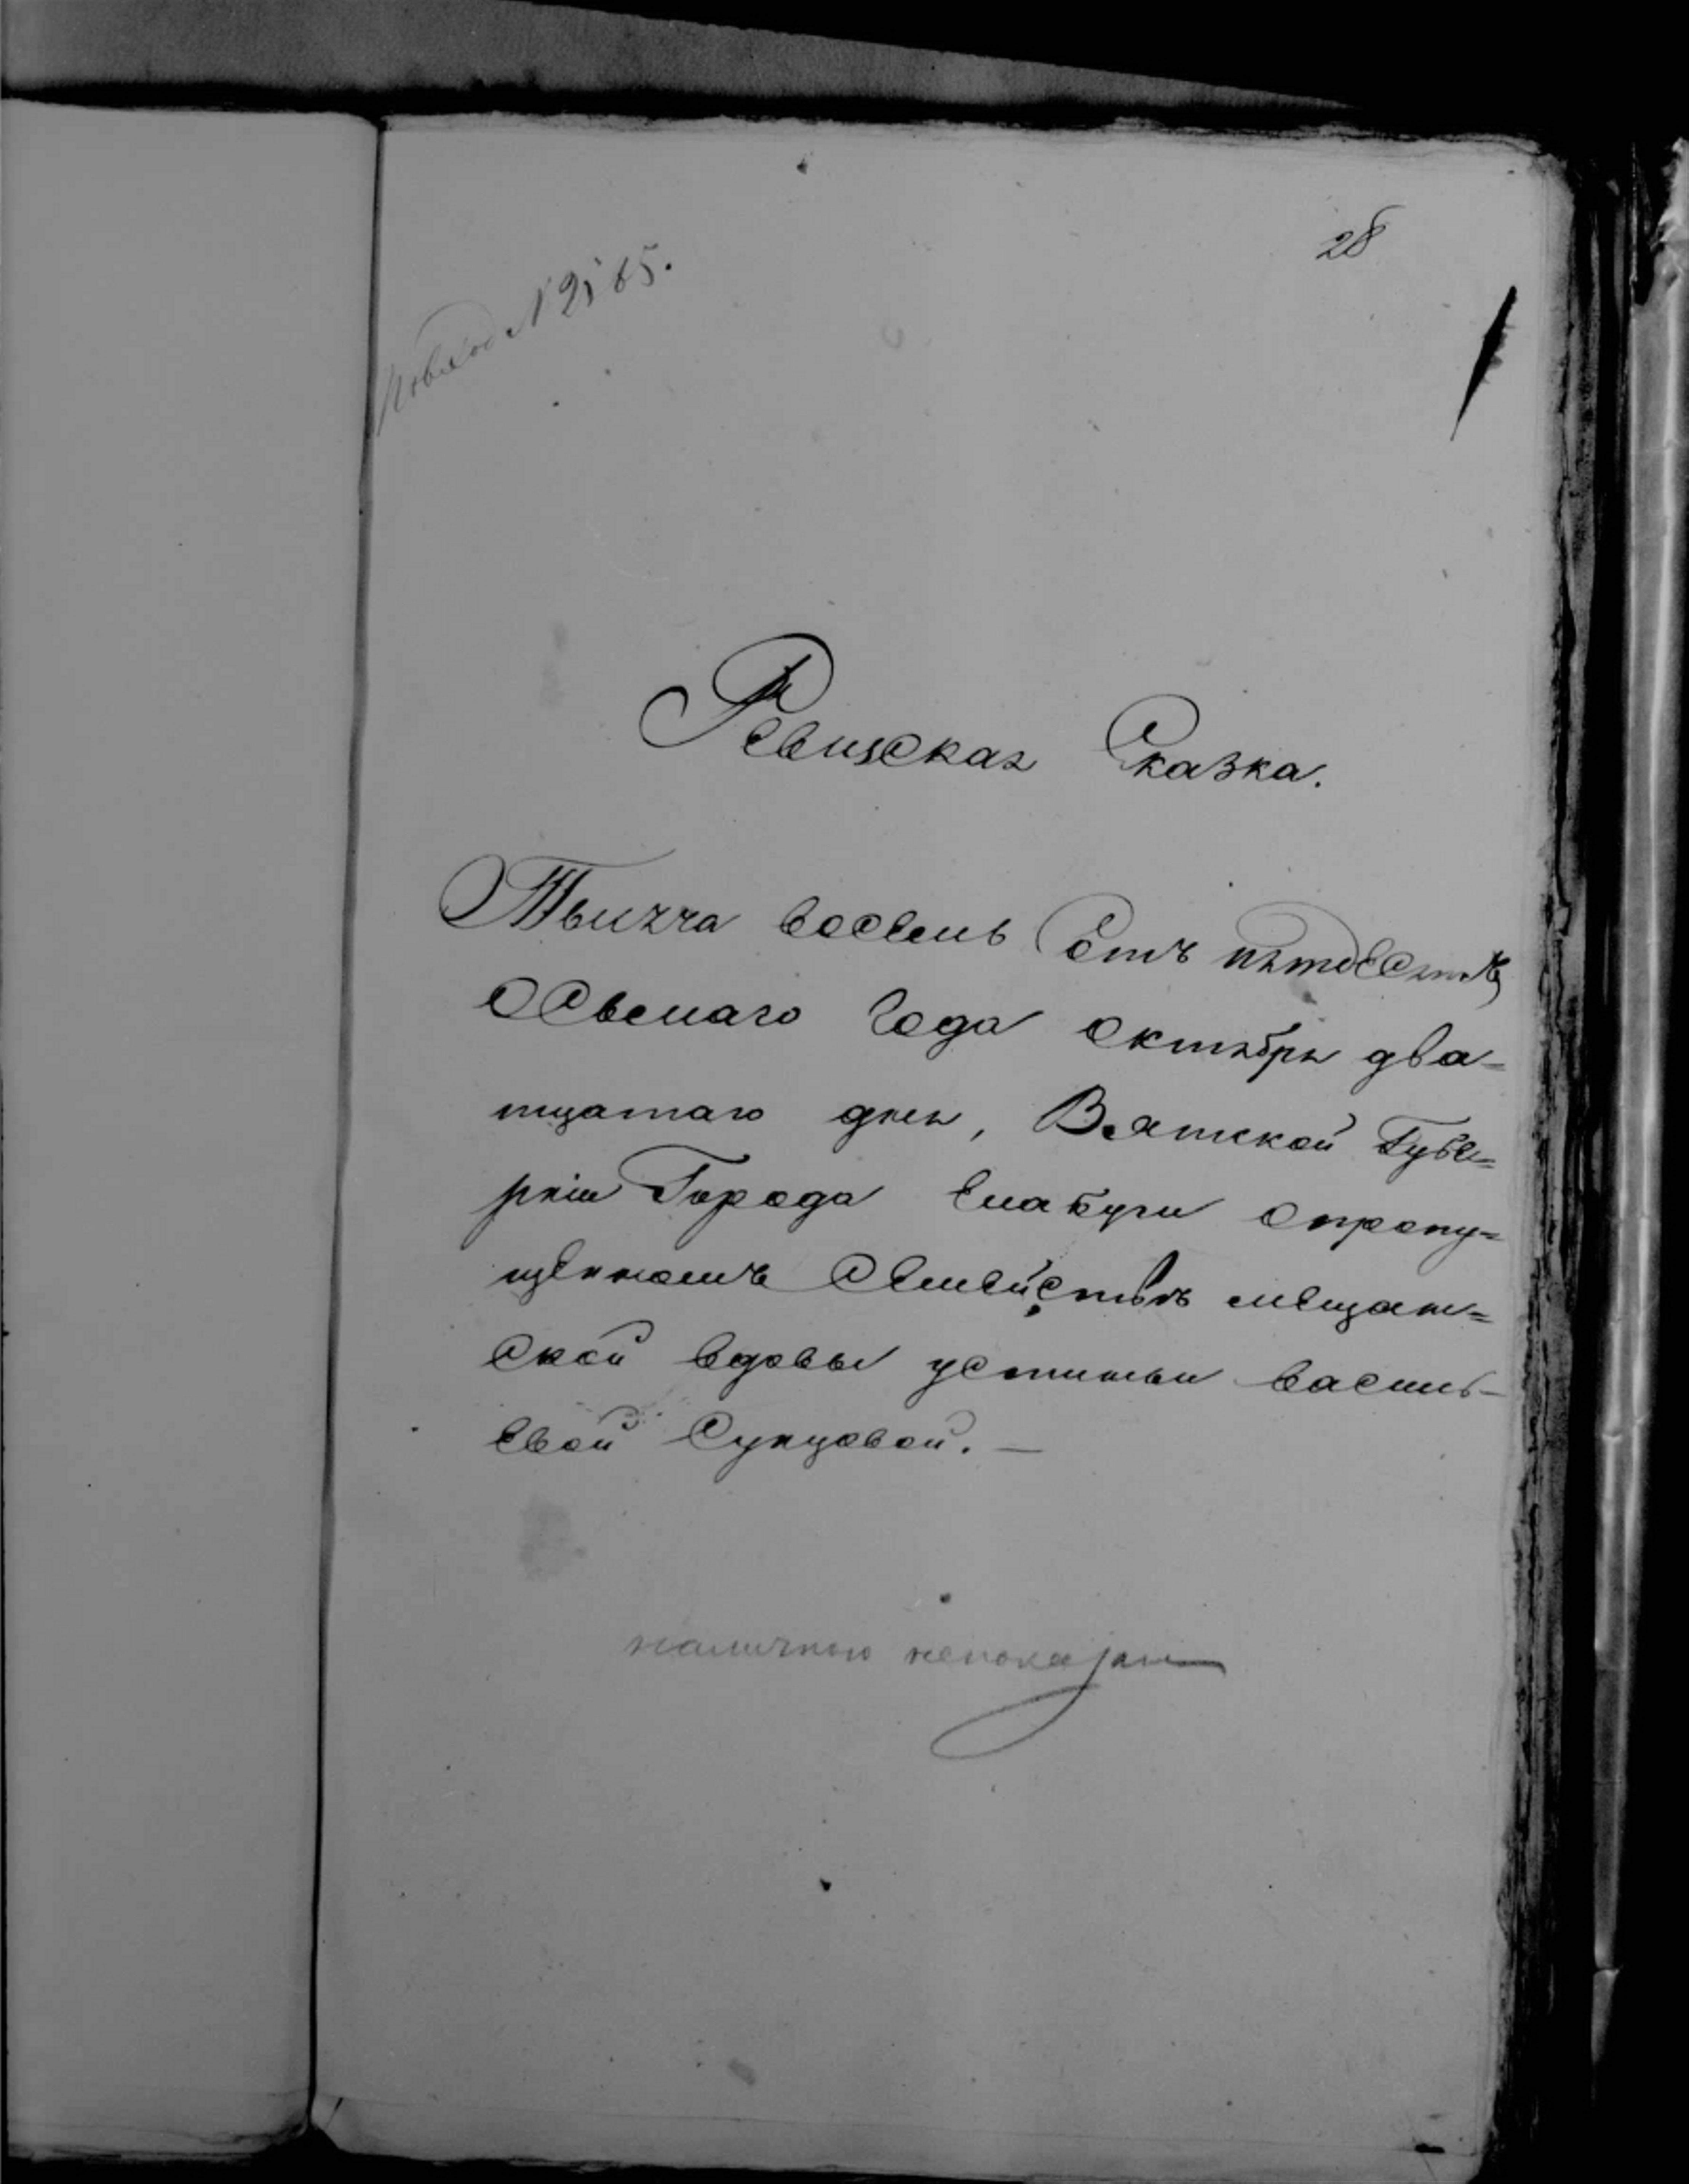 28
№ 2165.
Ревизская Сказка.
Тысяча восемь Сотъ пятдесятъ
осьмаго года октября два-
тцатаго дня, Вятской Губе-
рніи Города Елабуги о пропу-
щенномъ семействѣ мещан-
ской вдовы устиньи василь-
евой Сунцовой. —
наличною непоказаны